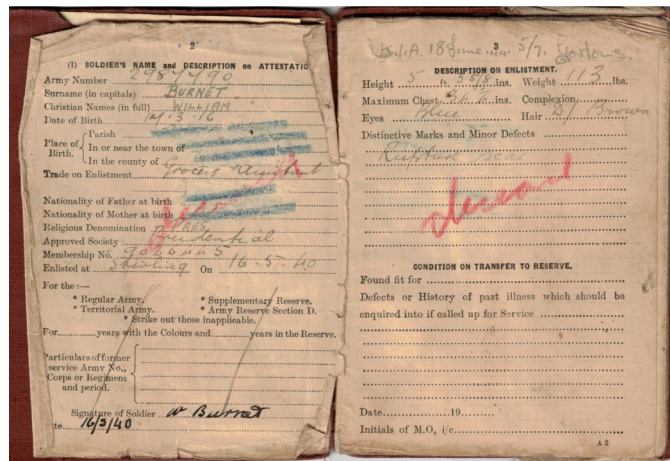 2
(I) SOLDIER'S NAME and DESCRIPTION on ATTESTATIO
Army Number
Surname (in capitals) BURNET
Christian Names (in full) WILLIAM
Date of Birth 14.3.16
Place of Birth. { Parish
In or near the town of
In the county of
Trade on Enlistment Grocers Assistant
Nationality of Father at birth
Nationality of Mother at birth
Religious Denomination
Approved Society Prudential
Membership No.
Enlisted at Stirling On 16.5.40
For the :—
* Regular Army. * Supplementary Reserve.
* Territorial Army. * Army Reserve Section D.
* Strike out those inapplicable.
For ........ years with the Colours and ........ years in the Reserve.
Particulars of former
service Army No.,
Corps or Regiment
and period.
Signature of Soldier W Burnet
te 16/5/40
18 June 5/7. Gordons.
3
DESCRIPTION ON ENLISTMENT.
Height 5 ft. ins. Weight 113 lbs.
Maximum Chest ins. Complexion
Eyes Blue Hair D/ Brown
Distinctive Marks and Minor Defects
Rupture Scar
CONDITION ON TRANSFER TO RESERVE.
Found fit for
Defects or History of past illness which should be
enquired into if called up for Service
Date ........ 19 ........
Initials of M.O, i/c
A 2